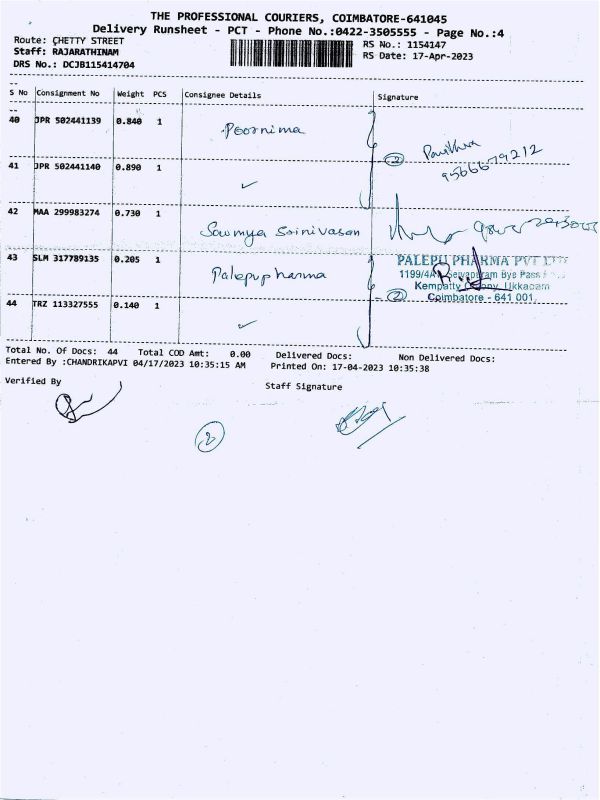 THE PROFESSIONAL COURIERS, COIMBATORE-641045
Delivery Runsheet - PCT - Phone No.:0422-3505555 - Page No.:4
Route: CHETTY STREET
RS No.: 1154147
Staff: RAJARATHINAM
RS Date: 17-Apr-2023
DRS No.: DCJB115414704
S No Consignment No Weight PCS Consignee Details Signature
40 JPR 502441139 0.840 1 Poornima
2 Pavithra
9566679212
41 JPR 502441140 0.890 1 ✓
42 MAA 299983274 0.730 1 Sowmya Srinivasan
43 SLM 317789135 0.205 1 Palepupharma
PALEPU PHARMA PVT LTD
1199/4A, Selvapuram Bye Pass
Kempatty Colony, Ukkadam
2 Coimbatore - 641 001.
44 TRZ 113327555 0.140 1 ✓
Total No. Of Docs: 44 Total COD Amt: 0.00 Delivered Docs: Non Delivered Docs:
Entered By :CHANDRIKAPVI 04/17/2023 10:35:15 AM Printed On: 17-04-2023 10:35:38
Verified By
Staff Signature
2